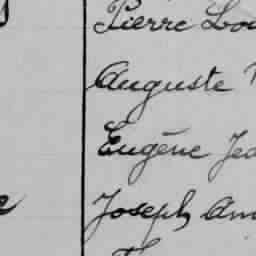 Pierre Lou
Auguste
Eugène Jea
Joseph Am